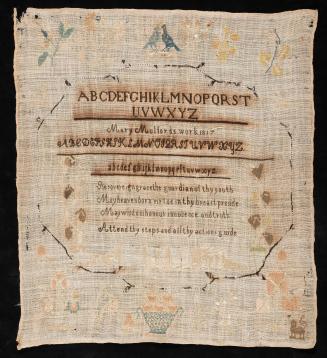 ABCDEFGHIKLMNOPQRST
UVWXYZ
Mary Mulfords work 1817
ABCDEFGHIKLMNOPQRSTUVWXYZ
abcdefghijklmnopqrstuvwxyz
the guardian of thy youth
May heavenborn virtue in thy breast preside
May innocence and truth
Attend thy steps and all thy actions guide